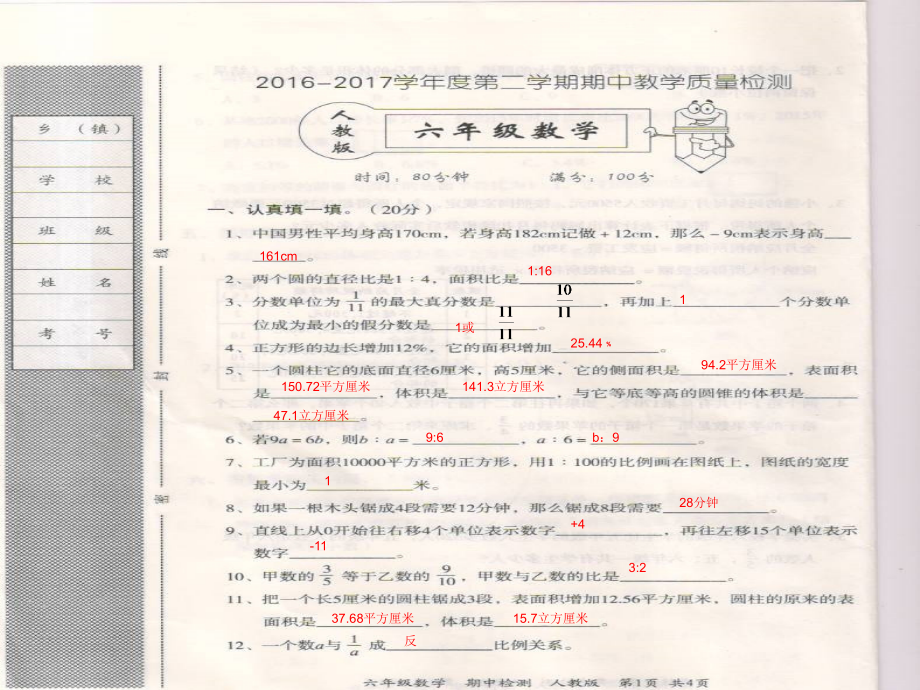 2016-2017学年度第二学期期中教学质量检测
人教版
六年级数学
时间：80分钟 满分：100分
乡（镇）
学 校
班 级
姓 名
考 号
线
封
密
一、认真填一填。（20分）
1、中国男性平均身高170cm，若身高182cm记做＋12cm，那么－9cm表示身高
161cm。
2、两个圆的直径比是1∶4，面积比是1:16。
3、分数单位为 1/11 的最大真分数是 10/11，再加上1个分数单
位成为最小的假分数是1或 11/11。
4、正方形的边长增加12%，它的面积增加25.44%。
5、一个圆柱它的底面直径6厘米，高5厘米，它的侧面积是94.2平方厘米，表面积
是150.72平方厘米，体积是141.3立方厘米，与它等底等高的圆锥的体积是
47.1立方厘米。
6、若9a＝6b，则b∶a＝9:6、a∶6＝b：9。
7、工厂为面积10000平方米的正方形，用1∶100的比例画在图纸上，图纸的宽度
最小为1米。
8、如果一根木头锯成4段需要12分钟，那么锯成8段需要28分钟。
9、直线上从0开始往右移4个单位表示数字+4，再往左移15个单位表示
数字-11。
10、甲数的 3/5 等于乙数的 9/10，甲数与乙数的比是3:2。
11、把一个长5厘米的圆柱锯成3段，表面积增加12.56平方厘米，圆柱的原来的表
面积是37.68平方厘米，体积是15.7立方厘米。
12、一个数a与 1/a 成反比例关系。
六年级数学 期中检测 人教版 第1页 共4页